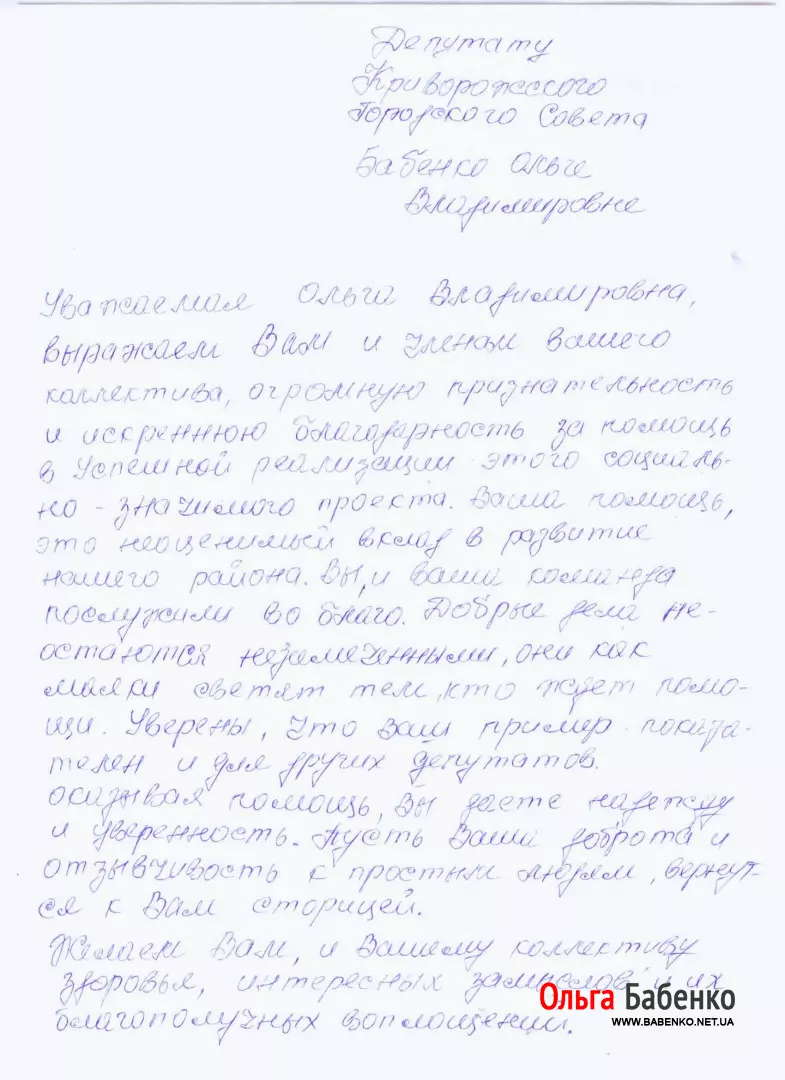 Депутату
Криворожсского
Городского Совета
Бабенко Ольге
Владимировне
Уважаемая Ольга Владимировна,
выражаем Вам и членам вашего
коллектива, огромную признательность
и искреннюю благодарность за помощь
в успешной реализации этого социаль-
но - значимого проекта. Ваша помощь,
это неоценимый вклад в развитие
нашего района. Вы, и ваша команда
послужили во благо. Добрые дела не-
остаются незамеченными, они как
маяки светят тем, кто ждет помо-
щи. Уверены, что Ваш пример показа-
телен и для других депутатов.
Оказывая помощь, Вы даете надежду
и уверенность. Пусть Ваша доброта и
отзывчивость к простым людям, вернут-
ся к Вам сторицей.
Желаем Вам, и Вашему коллективу
здоровья, интересных замыслов и их
благополучных воплощений.
Ольга Бабенко
WWW.BABENKO.NET.UA